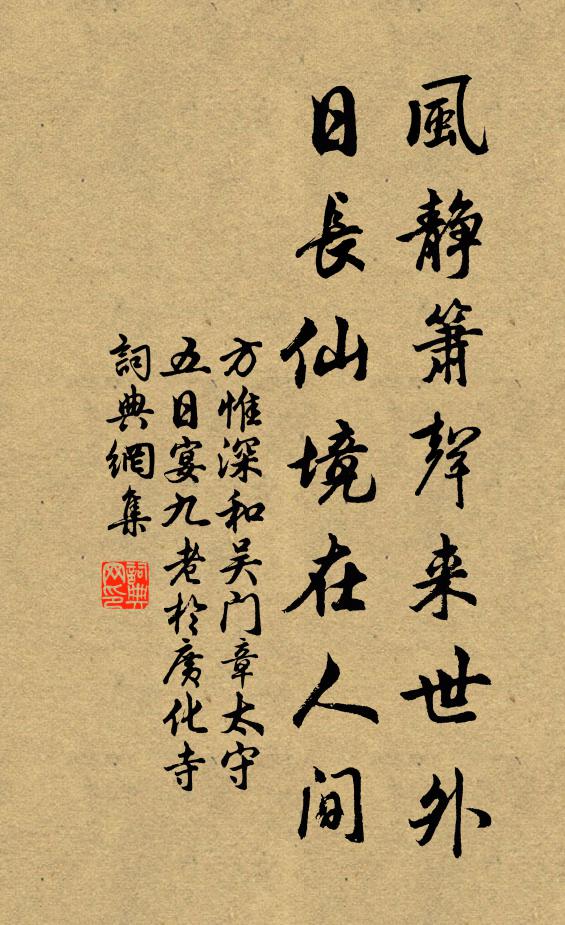 風静簫聲来世外
日長仙境在人间
方惟深和吴门章太守
五日宴九老於廣化寺
詞典網集
詞典网印